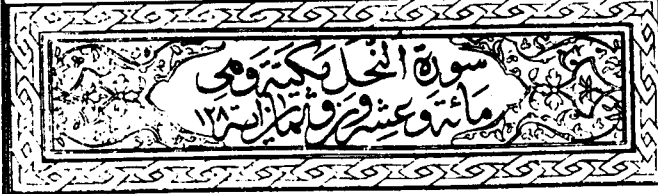 سورة النحل مكية وهى
مائة وعشرون وثمان آية ١٢٨